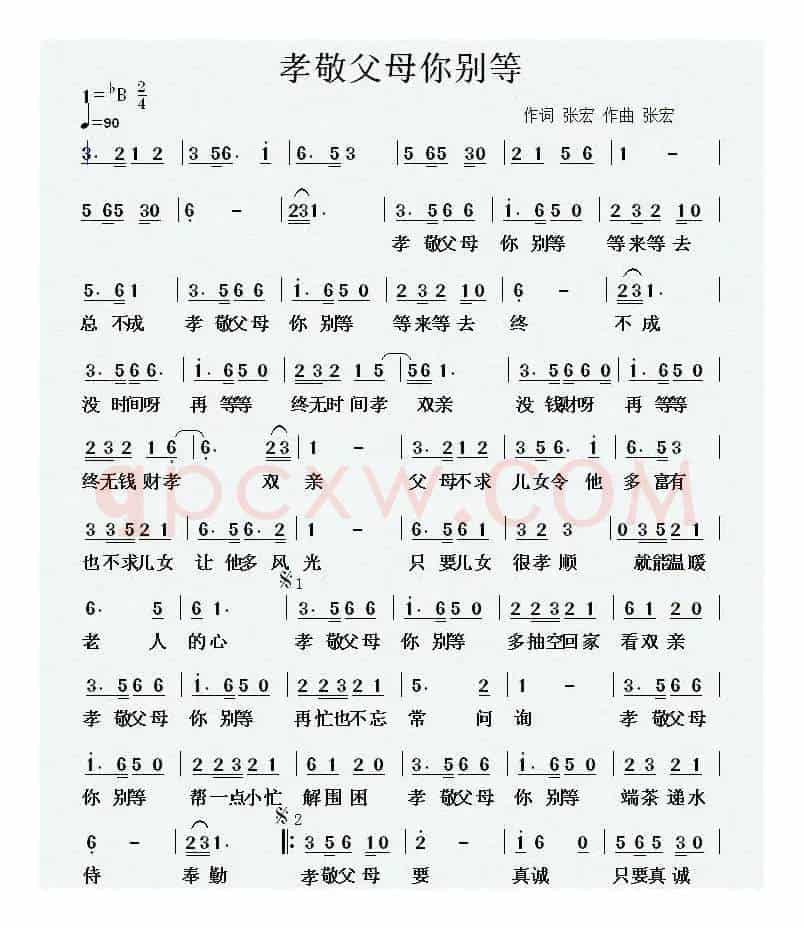 孝敬父母你别等
1=♭B 2/4
♩=90
作词 张宏 作曲 张宏
3· 2 1 2 | 3 5 6· i | 6· 5 3 | 5 65 30 | 2 1 5 6 | 1 – |
5 65 30 | 6 – | 231· | 3· 5 6 6 | i· 6 5 0 | 2 3 2 1 0 |
孝 敬父母 你 别等 等来等去
5· 6 1 | 3· 5 6 6 | i· 6 5 0 | 2 3 2 1 0 | 6 – | 231· |
总 不成 孝 敬父母 你 别等 等来等去 终 不成
3· 5 6 6· | i· 6 5 0 | 2 3 2 1 5 | 5 6 1· | 3· 5 6 6 0 | i· 6 5 0 |
没 时间呀 再 等等 终无时间孝 双亲 没 钱财呀 再 等等
2 3 2 1 6 | 6· 2 3 | 1 – | 3· 2 1 2 | 3 5 6· i | 6· 5 3 |
终无钱财孝 双 亲 父 母不求 儿女令 他 多 富有
qpcxw.COM
3 3 5 2 1 | 6· 5 6· 2 | 1 – | 6· 5 6 1 | 3 2 3 | 0 3 5 2 1 |
也不求儿女 让 他多 风 光 只 要儿女 很孝 顺 就能温暖
𝄋1
6· 5 | 6 1· | 3· 5 6 6 | i· 6 5 0 | 2 2 3 2 1 | 6 1 2 0 |
老 人 的心 孝 敬父母 你 别等 多抽空回家 看双亲
3· 5 6 6 | i· 6 5 0 | 2 2 3 2 1 | 5· 2 | 2 – | 3· 5 6 6 |
孝 敬父母 你 别等 再忙也不忘 常 问 询 孝 敬父母
i· 6 5 0 | 2 2 3 2 1 | 6 1 2 0 | 3· 5 6 6 | i· 6 5 0 | 2 3 2 1 |
你 别等 帮一点小忙 解围困 孝 敬父母 你 别等 端茶递水
𝄋2
6 – | 231· ‖: 3 5 6 1 0 | 2 – | i 6 0 | 5 65 30 |
侍 奉勤 孝敬父母 要 真诚 只要真诚